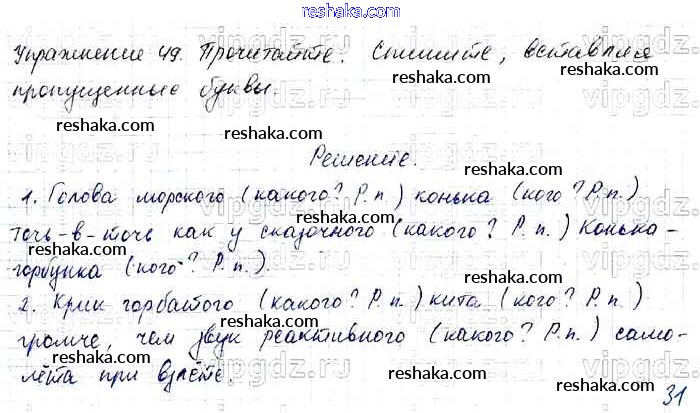 reshaka.com
Упражнение 49. Прочитайте. Спишите, вставляя
reshaka.com reshaka.com
пропущенные буквы.
vipgdz.ru vipgdz.ru
reshaka.com reshaka.com
Решение.
reshaka.com
1. Голова морского (какого? Р.п.) конька (кого? Р.п.)
reshaka.com reshaka.com
точь-в-точь как у сказочного (какого? Р.п.) Конька-
reshaka.com
горбунка (кого? Р.п.).
reshaka.com reshaka.com
2. Крик горбатого (какого? Р.п.) кита (кого? Р.п.)
reshaka.com
громче, чем звук реактивного (какого? Р.п.) само-
reshaka.com reshaka.com
лёта при взлёте.
vipgdz.ru vipgdz.ru
31
reshaka.com